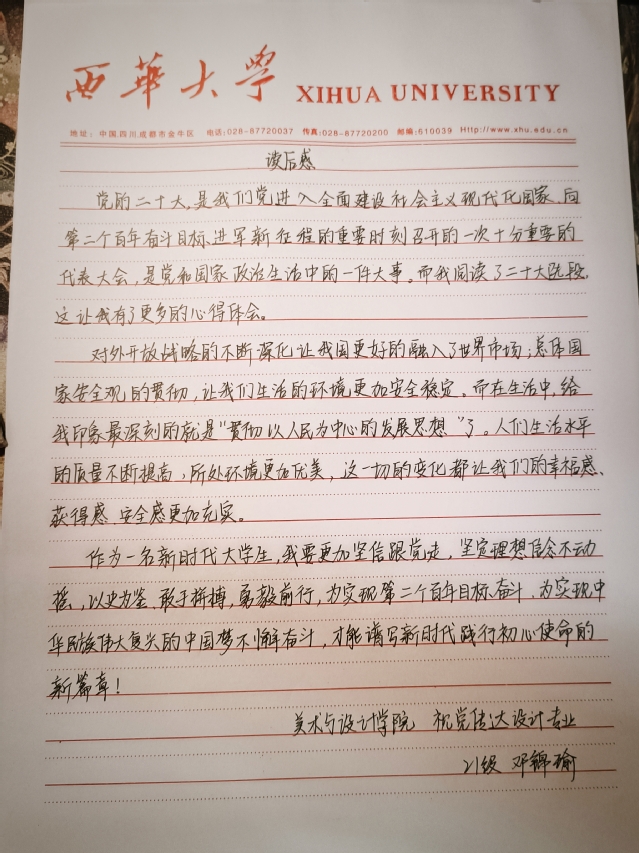 西華大學 XIHUA UNIVERSITY
地址：中国四川成都市金牛区 电话:028-87720037 传真:028-87720200 邮编:610039 Http://www.xhu.edu.cn
读后感
党的二十大,是我们党进入全面建设社会主义现代化国家、向
第二个百年奋斗目标进军新征程的重要时刻召开的一次十分重要的
代表大会，是党和国家政治生活中的一件大事。而我阅读了二十大片段,
这让我有了更多的心得体会。
对外开放战略的不断深化让我国更好的融入了世界市场;总体国
家安全观的贯彻,让我们生活的环境更加安全稳定。而在生活中,给
我印象最深刻的就是“贯彻以人民为中心的发展思想”了。人们生活水平
的质量不断提高,所处环境更加优美，这一切的变化都让我们的幸福感、
获得感、安全感更加充实。
作为一名新时代大学生,我要更加坚信跟党走，坚定理想信念不动
摇，以史为鉴、敢于拼搏，勇毅前行，为实现第二个百年目标奋斗、为实现中
华民族伟大复兴的中国梦不懈奋斗，才能谱写新时代践行初心使命的
新篇章！
美术与设计学院 视觉传达设计专业
21级 邓锦瑜